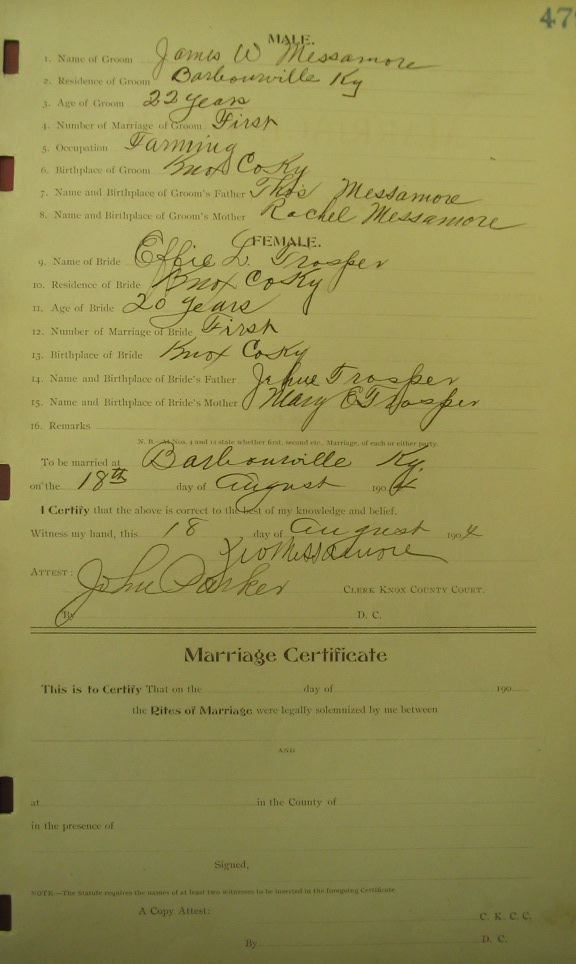 47
MALE.
1. Name of Groom James W Messamore
2. Residence of Groom Barbourville Ky
3. Age of Groom 22 years
4. Number of Marriage of Groom First
5. Occupation Farming
6. Birthplace of Groom Knox Co Ky
7. Name and Birthplace of Groom's Father Thos Messamore
8. Name and Birthplace of Groom's Mother Rachel Messamore
FEMALE.
9. Name of Bride Effie L. Trosper
10. Residence of Bride Knox Co Ky
11. Age of Bride 20 years
12. Number of Marriage of Bride First
13. Birthplace of Bride Knox Co Ky
14. Name and Birthplace of Bride's Father Trosper
15. Name and Birthplace of Bride's Mother Mary E Trosper
16. Remarks
N. B. At Nos. 4 and 12 state whether first, second etc., Marriage, of each or either party.
To be married at Barbourville Ky.
on the 18th day of August 1904
I Certify that the above is correct to the best of my knowledge and belief.
Witness my hand, this 18 day of August 1904
Messamore
ATTEST: John Parker CLERK KNOX COUNTY COURT.
By D. C.
Marriage Certificate
This is to Certify That on the day of 190
the Rites of Marriage were legally solemnized by me between
AND
at in the County of
in the presence of
Signed,
NOTE.—The Statute requires the names of at least two witnesses to be inserted in the foregoing Certificate
A Copy Attest: C. K. C. C.
By D. C.